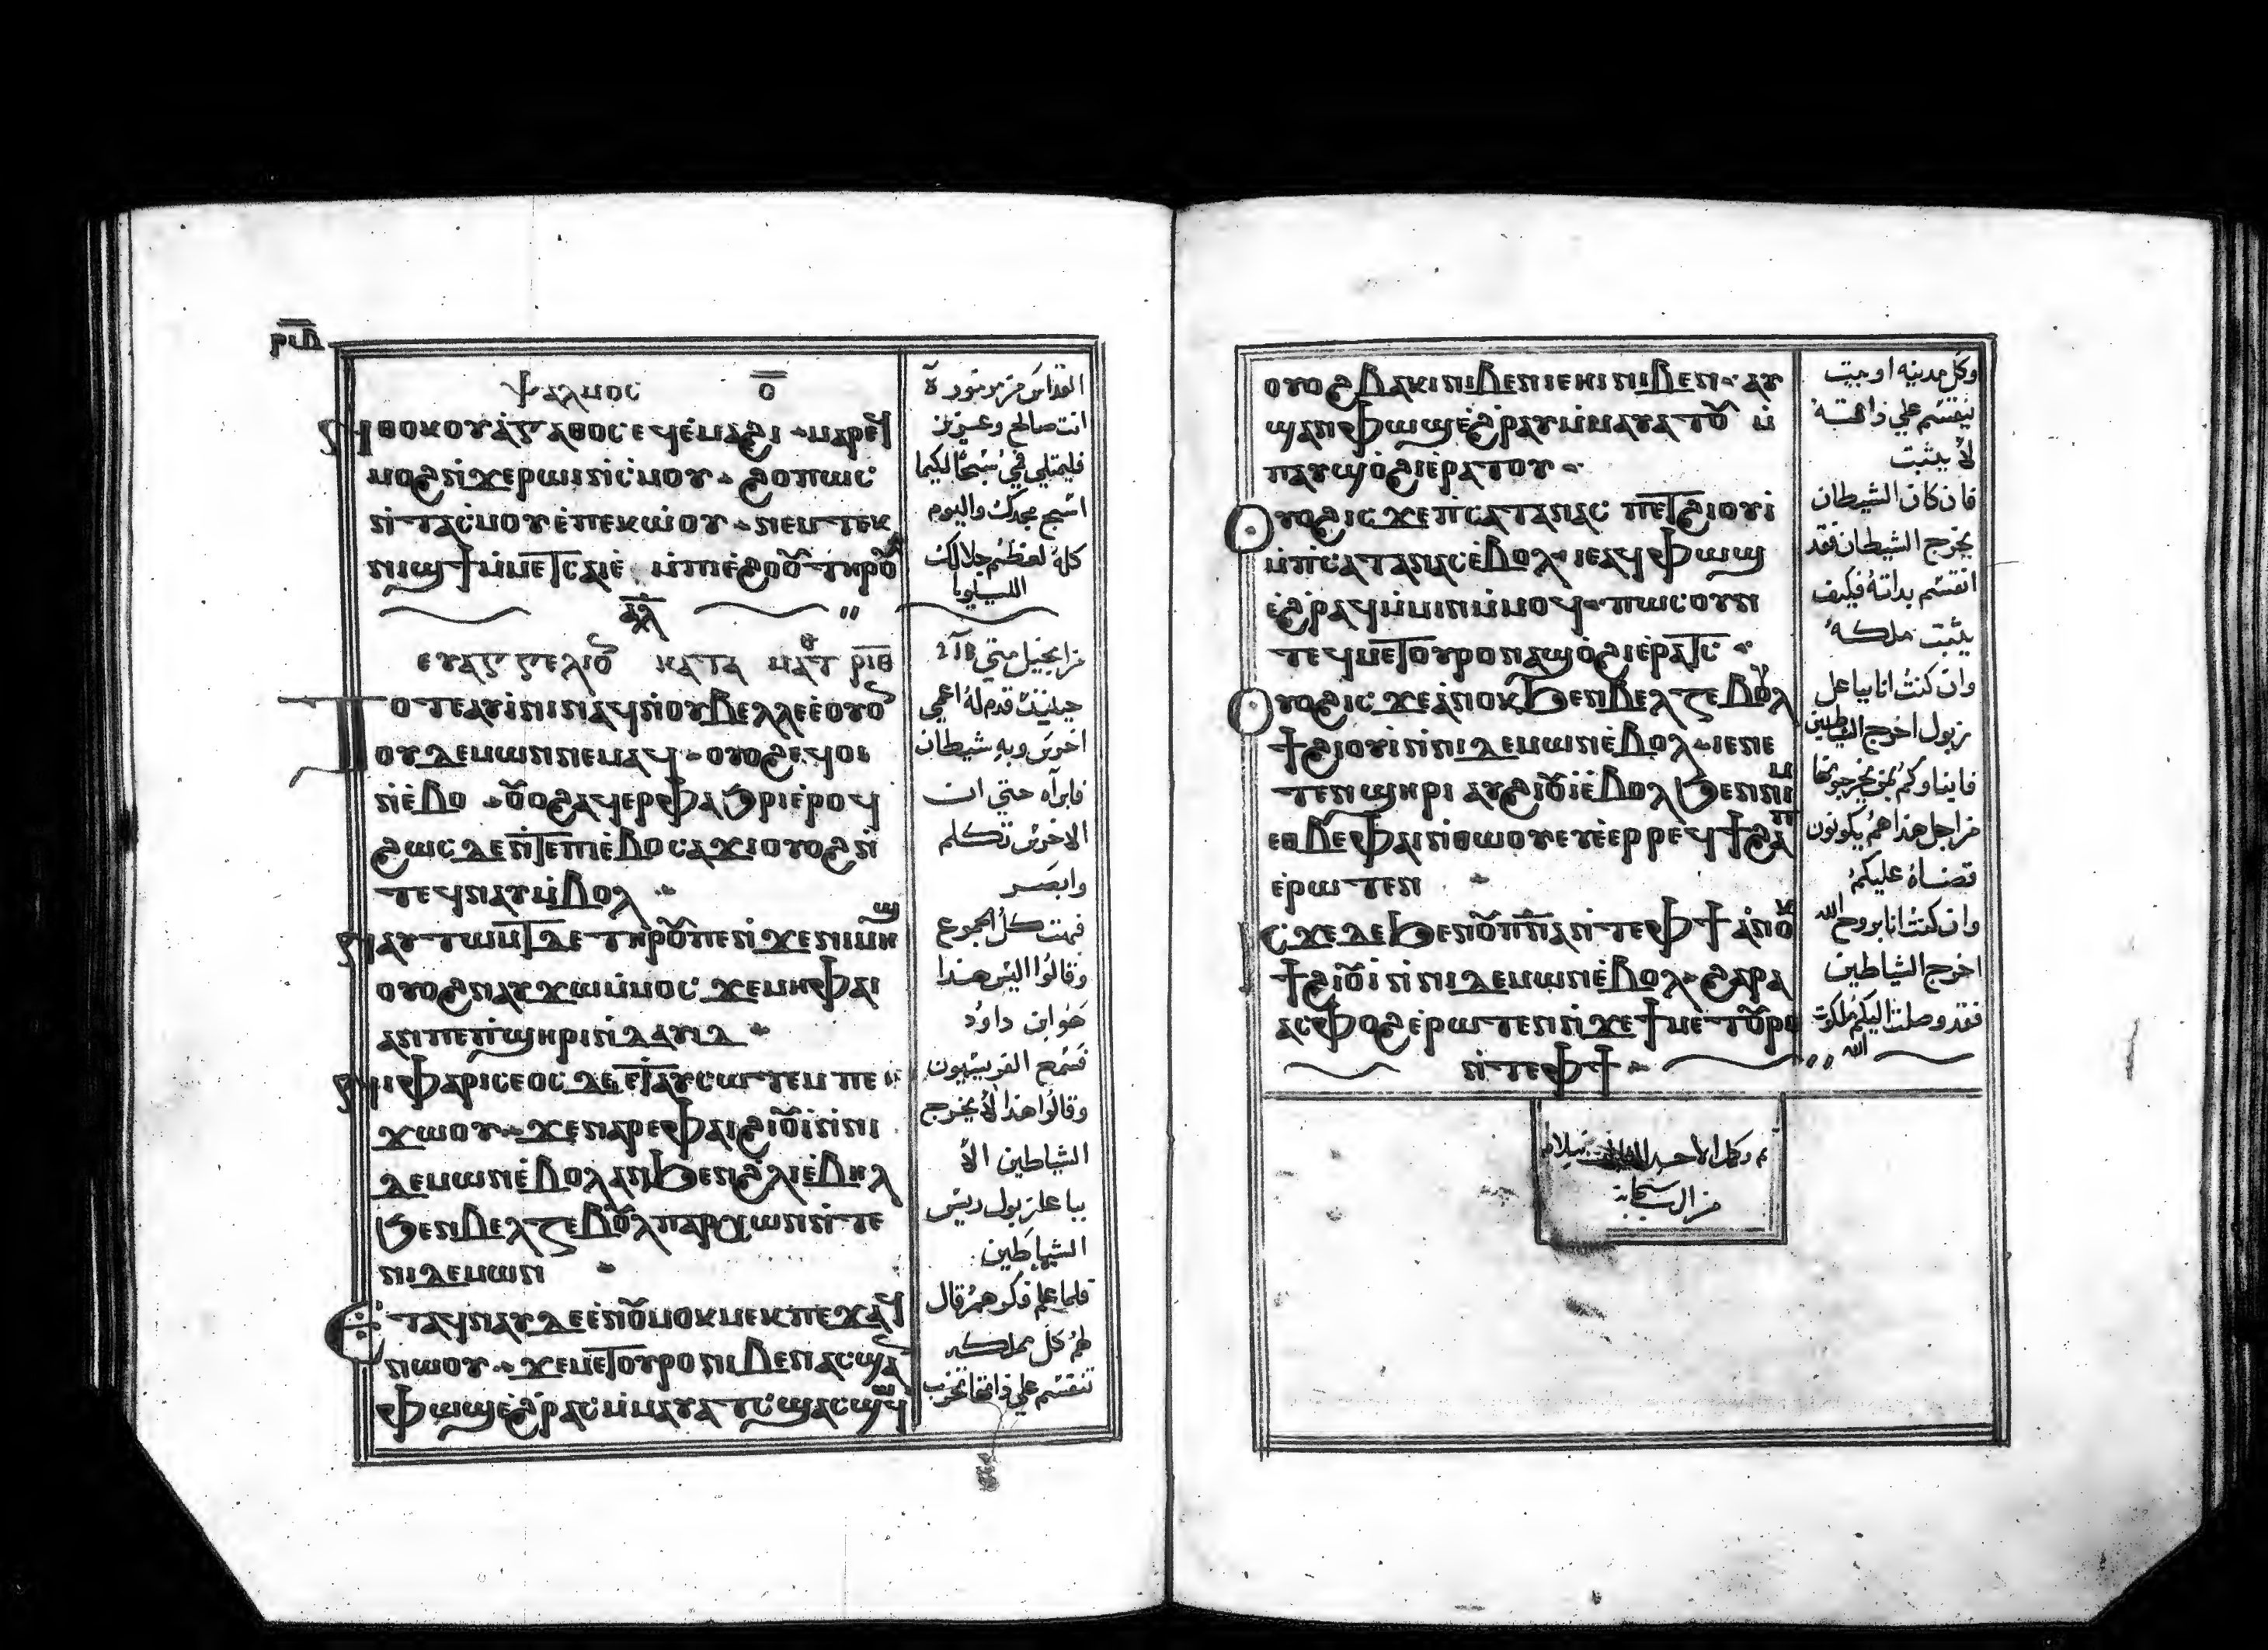 ⲣⲓⲃ
ⲯⲁⲗⲙⲟⲥ ⲟ̅
ⲛⲑⲟⲕ ⲟⲩⲁⲅⲁⲑⲟⲥ ⲉϥⲉⲙⲁϩⲓ ⲙⲁⲣⲉϥ
ⲙⲟϩ ⲛϫⲉ ⲣⲱⲓ ⲛⲥⲙⲟⲩ ϩⲟⲡⲱⲥ
ⲛⲧⲁⲥⲙⲟⲩ ⲉⲡⲉⲕⲱⲟⲩ ⲛⲉⲙ ⲧⲉⲕ
ⲛⲓϣϯ ⲙⲙⲉⲧⲥⲁⲓⲉ ⲙⲡⲓⲉϩⲟⲟⲩ ⲧⲏⲣϥ
ⲁⲗ
ⲉⲩⲁⲅⲅⲉⲗⲓⲟ ⲕⲁⲧⲁ ⲙⲁⲧ ⲣⲓⲑ
ⲧⲟⲧⲉ ⲁⲩⲓⲛⲓ ⲛⲁϥ ⲛⲟⲩⲃⲉⲗⲗⲉ ⲉⲟⲩⲟ
ⲟⲩⲇⲉⲙⲱⲛ ⲛⲉⲙⲁϥ ⲟⲩⲟϩ ⲉϥⲟⲓ
ⲛⲉⲃⲟ ⲟⲩⲟϩ ⲁϥⲉⲣⲫⲁϧⲣⲓ ⲉⲣⲟϥ
ϩⲱⲥ ⲇⲉ ⲛⲧⲉ ⲡⲓⲉⲃⲟ ⲥⲁϫⲓ ⲟⲩⲟϩ ⲛ
ⲧⲉϥⲛⲁⲩ ⲙⲃⲟⲗ
ⲛⲁⲩⲧⲱⲙⲧ ⲇⲉ ⲧⲏⲣⲟⲩ ⲡⲉ ⲛϫⲉ ⲛⲓⲙⲏϣ
ⲟⲩⲟϩ ⲛⲁⲩϫⲱ ⲙⲙⲟⲥ ϫⲉ ⲙⲏ ⲫⲁⲓ
ⲁⲛ ⲡⲉ ⲡϣⲏⲣⲓ ⲛⲇⲁⲩⲓⲇ
ⲛⲓⲫⲁⲣⲓⲥⲉⲟⲥ ⲇⲉ ⲉⲧⲁⲩⲥⲱⲧⲉⲙ ⲡⲉ
ϫⲱⲟⲩ ϫⲉ ⲛⲁⲣⲉ ⲫⲁⲓ ϩⲓⲟⲩⲓ ⲛⲛⲓ
ⲇⲉⲙⲱⲛ ⲉⲃⲟⲗ ⲁⲛ ϧⲉⲛ ϩⲗⲓ ⲉⲃⲏⲗ
ϧⲉⲛ ⲃⲉⲗⲍⲉⲃⲟⲩⲗ ⲡⲁⲣⲭⲱⲛ ⲛⲧⲉ
ⲛⲓⲇⲉⲙⲱⲛ
ⲉⲧⲁϥⲛⲁⲩ ⲇⲉ ⲉⲛⲟⲩⲙⲟⲕⲙⲉⲕ ⲡⲉϫⲁϥ
ⲛⲱⲟⲩ ϫⲉ ⲙⲉⲧⲟⲩⲣⲟ ⲛⲓⲃⲉⲛ ⲁⲥϣⲁ
ⲫⲱϣ ⲉϩⲣⲁⲥ ⲙⲙⲁⲩⲁⲧⲥ ϣⲁⲥϣⲱϥ
القداس مزمور ة
انت صالح وعزيز
فليمتلي في سبحًا لكيما
اسبح مجدك واليوم
كله لعظم جلالك
الليلويا
من انجيل متي
حينيذ قدم له اعمي
اخرس وبه شيطان
فابراه حتي ان
الاخرس تكلم
وابصر
فبهت كل الجموع
وقالوا اليس هذا
هو ابن داود
فسمع الفريسيون
وقالوا هذا لا يخرج
الشياطين الا
بباعلزبول ريس
الشياطين
فلما علم فكرهم قال
لهم كل مملكه
تنقسم علي ذاتها تخرب
ⲟⲩⲟϩ ⲃⲁⲕⲓ ⲛⲓⲃⲉⲛ ⲓⲉ ⲏⲓ ⲛⲓⲃⲉⲛ ⲁⲩ
ϣⲁⲛⲫⲱϣ ⲉϩⲣⲁⲩ ⲙⲙⲁⲩⲁⲧⲟⲩ ⲙ
ⲡⲁⲩϣⲟϩⲓ ⲉⲣⲁⲧⲟⲩ
ⲟⲩⲟϩ ⲓⲥϫⲉ ⲡⲥⲁⲧⲁⲛⲁⲥ ⲡⲉⲧϩⲓⲟⲩⲓ
ⲙⲡⲥⲁⲧⲁⲛⲁⲥ ⲉⲃⲟⲗ ⲓⲉ ⲁϥⲫⲱϣ
ⲉϩⲣⲁϥ ⲙⲙⲓⲛ ⲙⲙⲟϥ ⲡⲱⲥ ⲟⲩⲛ
ⲧⲉϥⲙⲉⲧⲟⲩⲣⲟ ⲛⲁϣⲟϩⲓ ⲉⲣⲁⲧⲥ
ⲟⲩⲟϩ ⲓⲥϫⲉ ⲁⲛⲟⲕ ϧⲉⲛ ⲃⲉⲗⲍⲉⲃⲟⲩⲗ
ϯϩⲓⲟⲩⲓ ⲛⲛⲓⲇⲉⲙⲱⲛ ⲉⲃⲟⲗ ⲓⲉ ⲛⲉ
ⲧⲉⲛϣⲏⲣⲓ ⲁⲩϩⲓⲟⲩⲓ ⲉⲃⲟⲗ ϧⲉⲛ ⲛⲓⲙ
ⲉⲑⲃⲉ ⲫⲁⲓ ⲛⲑⲱⲟⲩ ⲉⲩⲉⲉⲣⲣⲉϥϯϩⲁⲡ
ⲉⲣⲱⲧⲉⲛ
ⲓⲥϫⲉ ⲇⲉ ϧⲉⲛ ⲟⲩⲡⲛⲁ ⲛⲧⲉ ⲫϯ ⲁⲛⲟⲕ
ϯϩⲓⲟⲩⲓ ⲛⲛⲓⲇⲉⲙⲱⲛ ⲉⲃⲟⲗ ϩⲁⲣⲁ
ⲁⲥⲫⲟϩ ⲉⲣⲱⲧⲉⲛ ⲛϫⲉ ϯⲙⲉⲧⲟⲩⲣⲟ
ⲛⲧⲉ ⲫϯ
وكل مدينه او بيت
ينقسم علي ذاته
لا يثبت
فان كان الشيطان
يخرج الشيطان فقد
انقسم بذاته فكيف
يثبت ملكه
وان كنت انا بباعل
زبول اخرج الشياطين
فابناوكم بمن يخرجونها
من اجل هذا هم يكونون
قضاة عليكم
وان كنت انا بروح الله
اخرج الشياطين
فقد وصلت اليكم ملكوت
الله